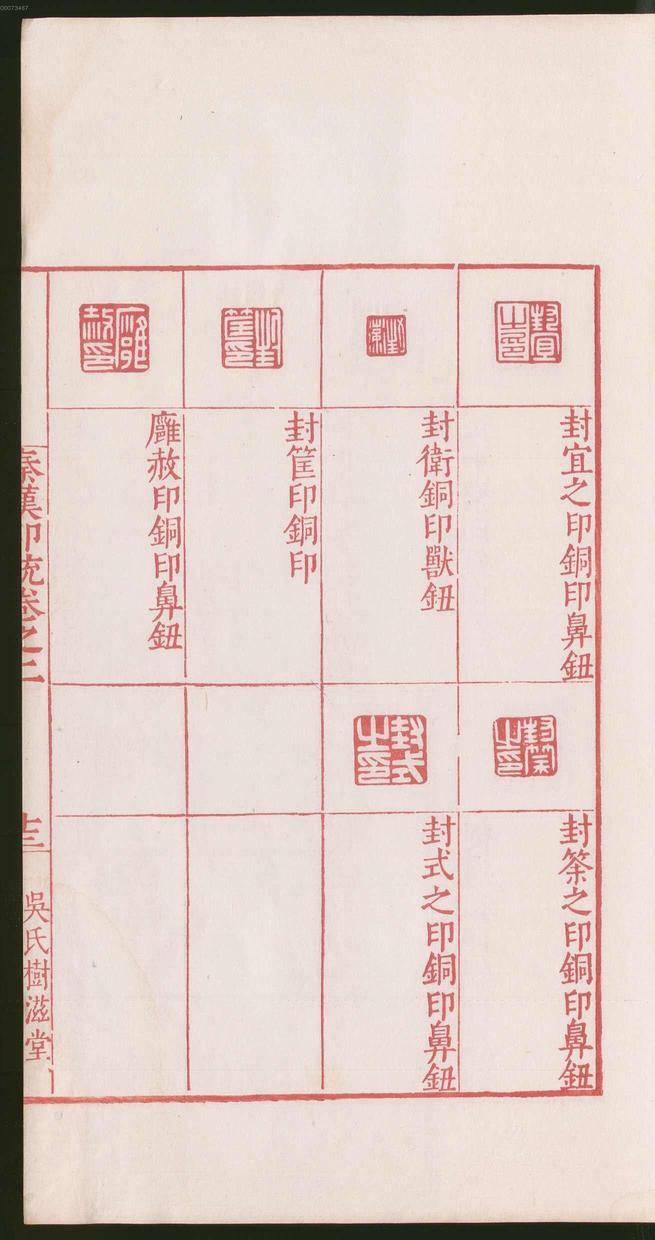 封宜之印銅印鼻鈕
封衛銅印獸鈕
封筐印銅印
廱赦印銅印鼻鈕
封筞之印銅印鼻鈕
封式之印銅印鼻鈕
秦漢印統卷之三
十三
吳氏樹滋堂
00073467